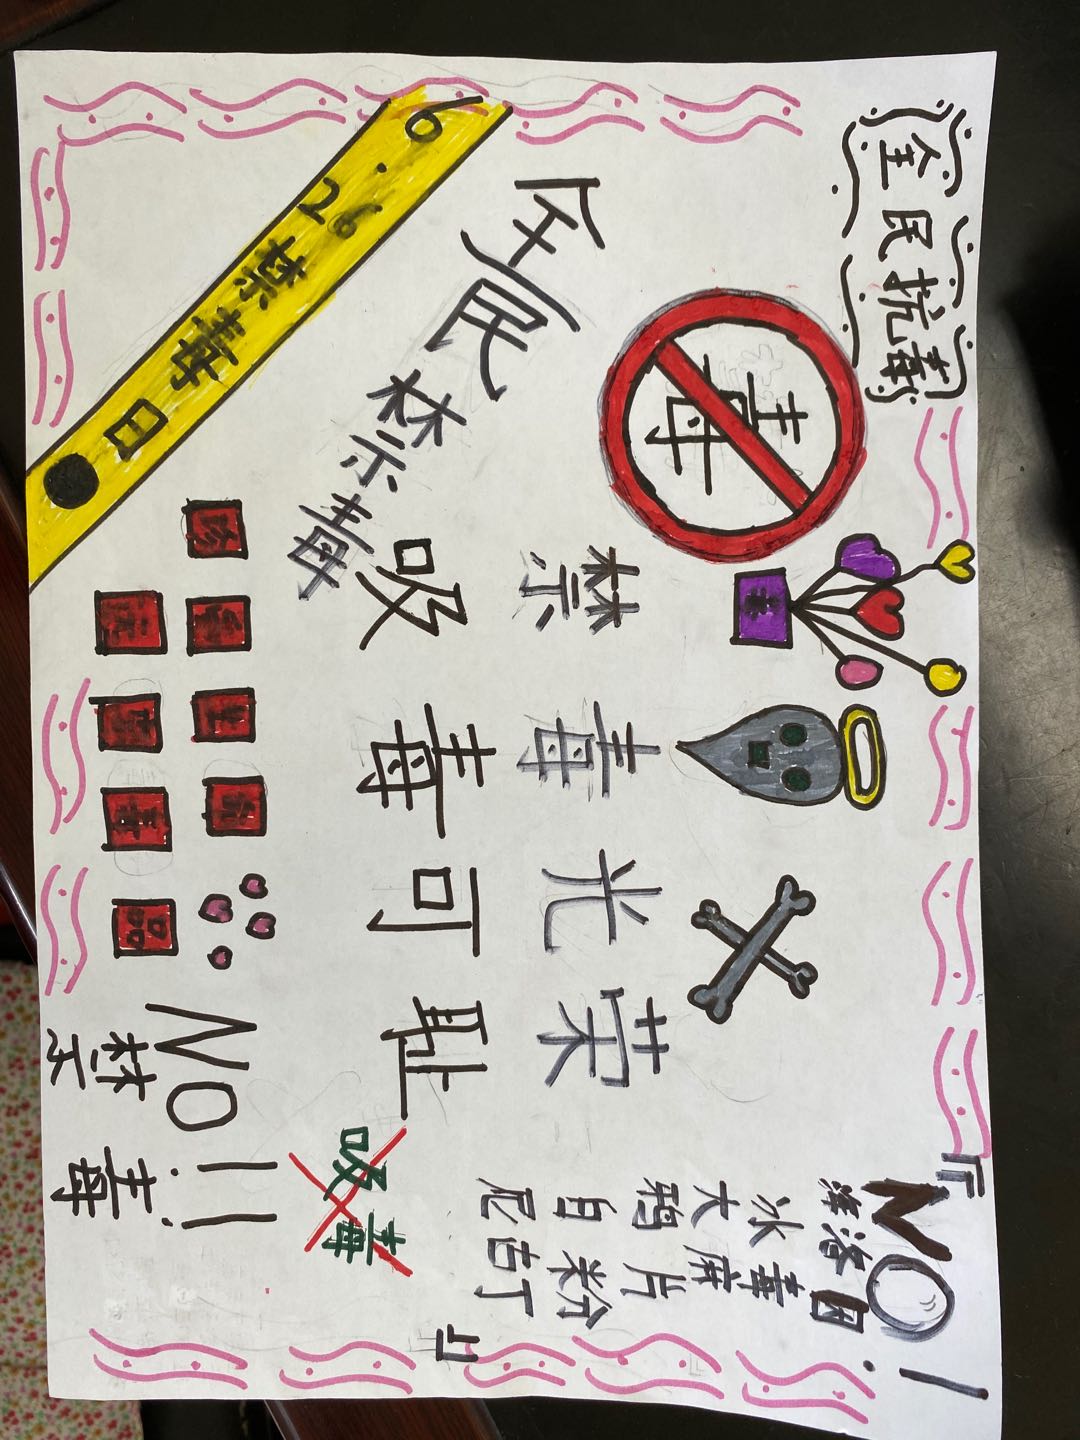 全民抗毒
6.26禁毒日
全民禁毒
毒
毒
禁毒光荣
吸毒可耻
NO!
海洛因
冰毒
大麻
鸦片
白粉
尼古丁
吸毒
珍爱生命
拒绝毒品
NO!!
禁毒